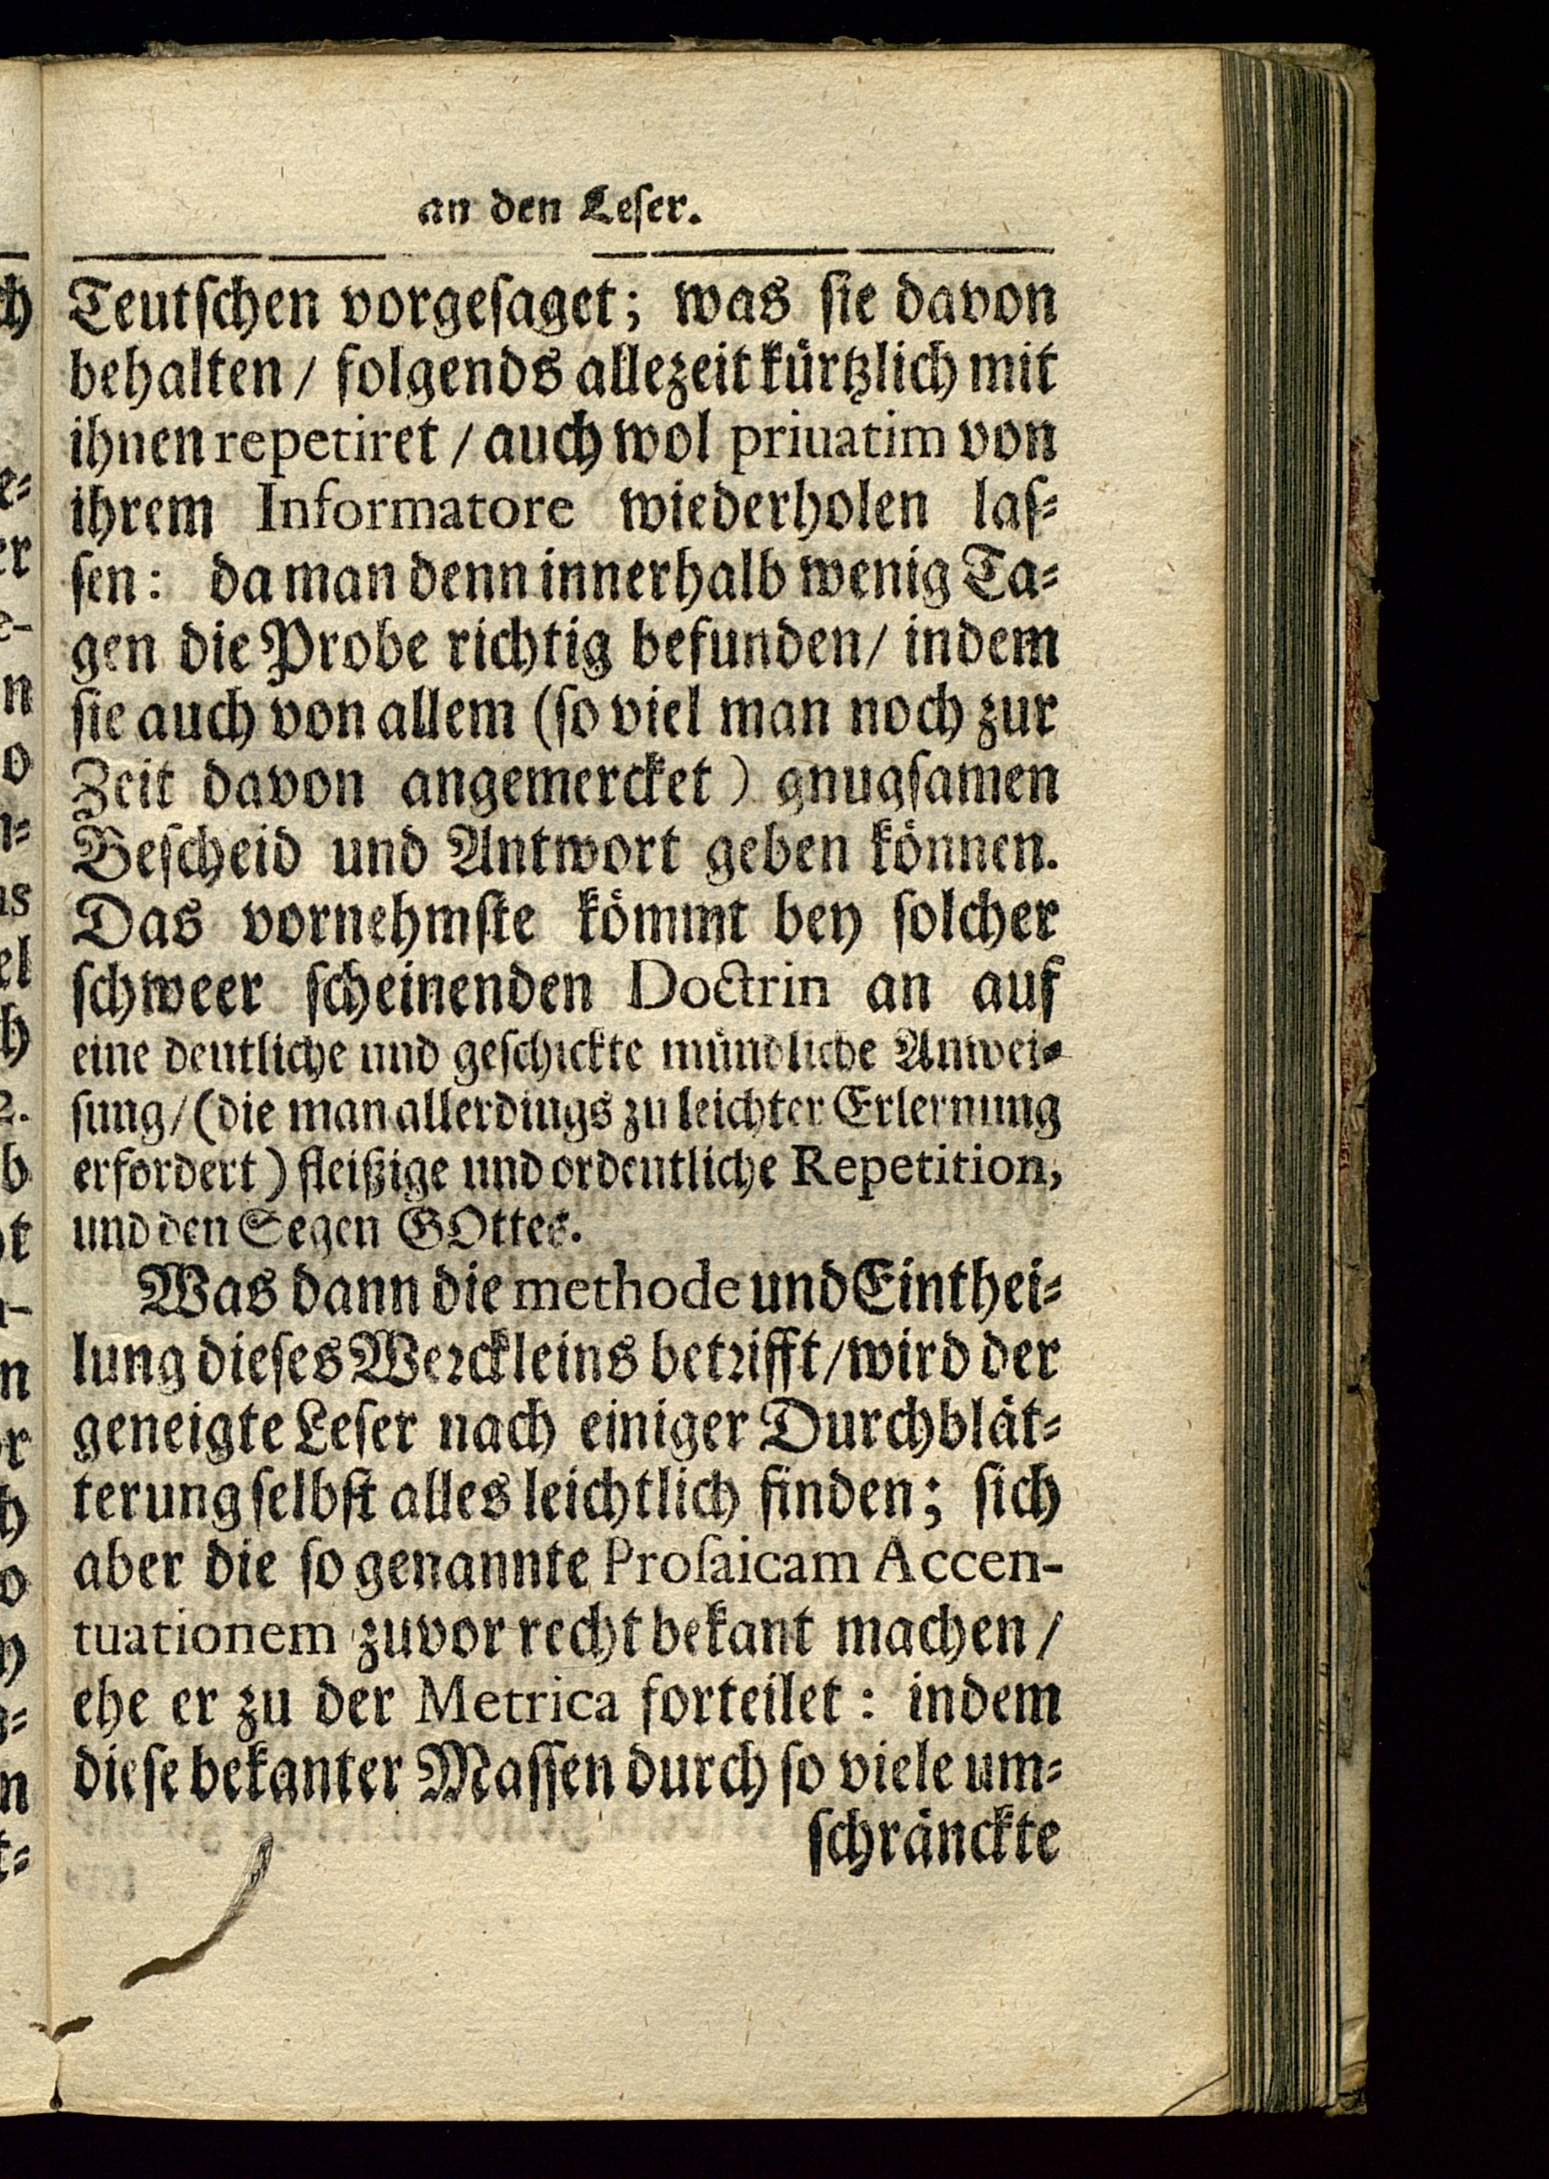 an den Leſer.
Teutſchen vorgeſaget; was ſie davon
behalten / folgends allezeit kürtzlich mit
ihnen repetiret / auch wol priuatim von
ihrem Informatore wiederholen laſ⸗
ſen: da man denn innerhalb wenig Ta⸗
gen die Probe richtig befunden / indem
ſie auch von allem (ſo viel man noch zur
Zeit davon angemercket) gnugſamen
Beſcheid und Antwort geben können.
Das vornehmſte kömmt bey ſolcher
ſchweer ſcheinenden Doctrin an auf
eine deutliche und geſchickte mündliche Anwei⸗
ſung / (die man allerdings zu leichter Erlernung
erfordert) fleißige und ordentliche Repetition,
und den Segen GOttes.
Was dann die methode und Einthei⸗
lung dieſes Werckleins betrifft / wird der
geneigte Leſer nach einiger Durchblät⸗
terung ſelbſt alles leichtlich finden; ſich
aber die ſo genannte Proſaicam Accen-
tuationem zuvor recht bekant machen /
ehe er zu der Metrica forteilet: indem
dieſe bekanter Maſſen durch ſo viele um⸗
ſchränckte